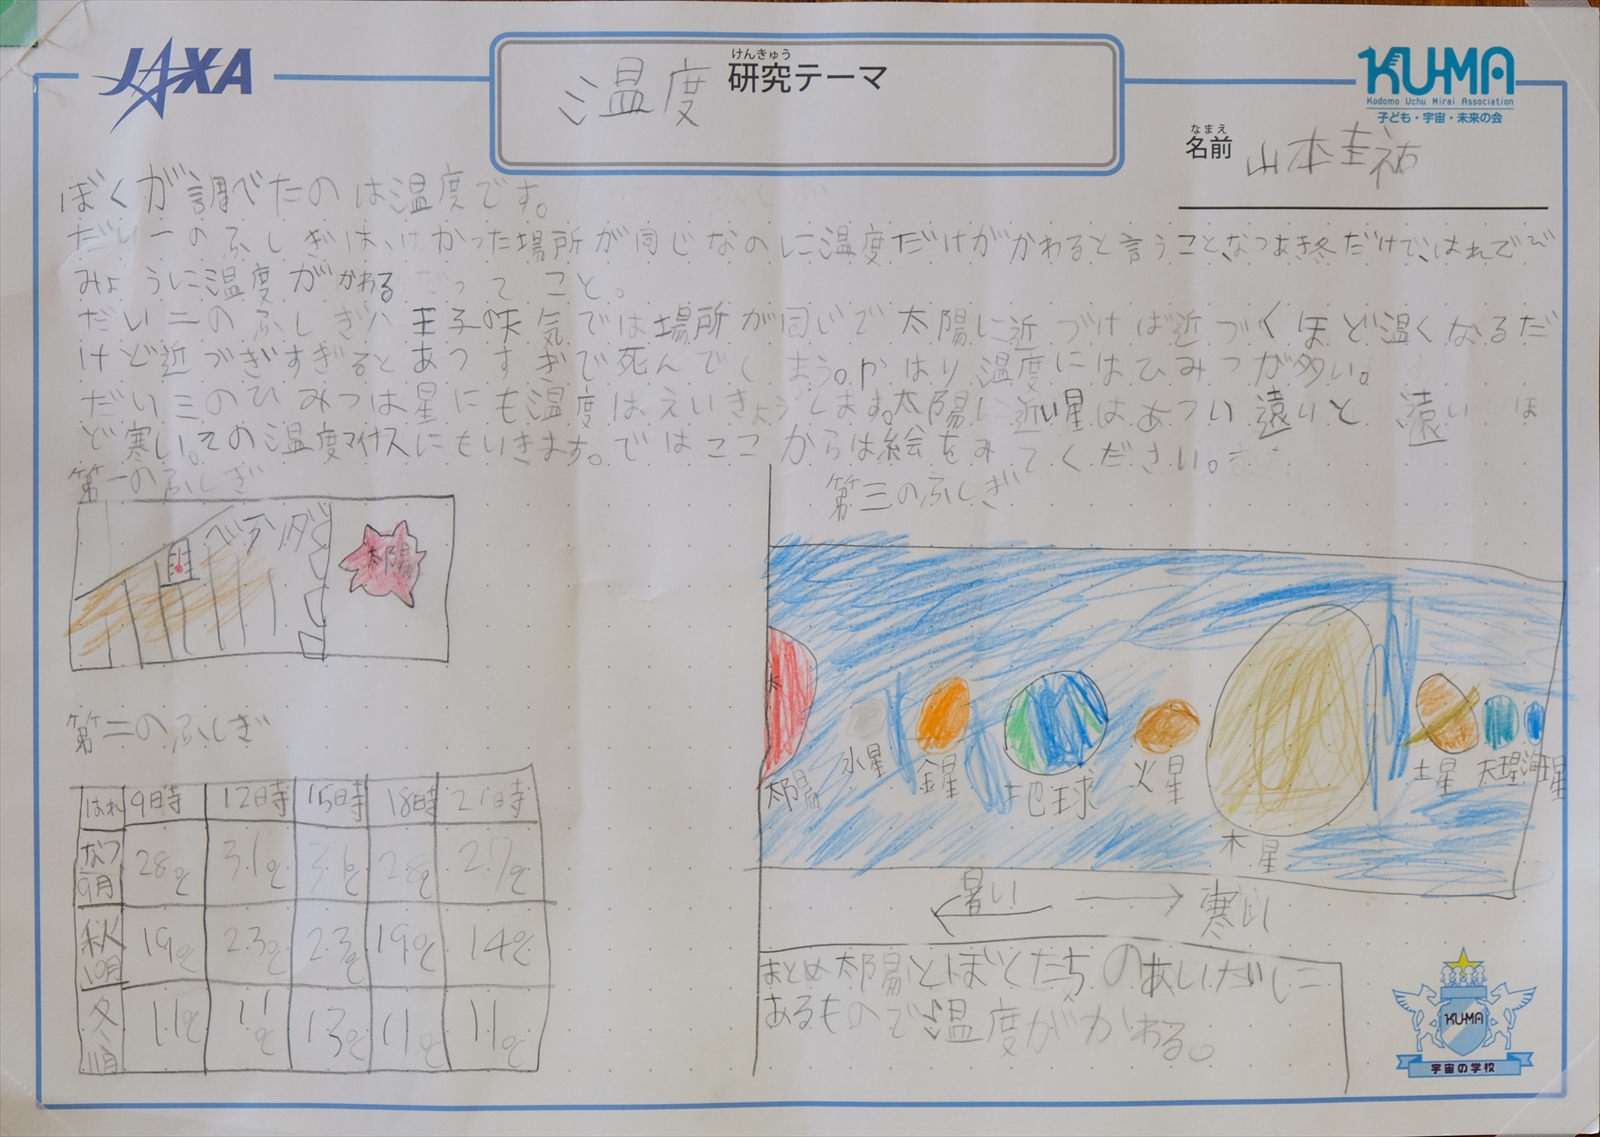 JAXA
けんきゅう
温度 研究テーマ
KU-MA
Kodomo Uchu Mirai Association
子ども・宇宙・未来の会
なまえ
名前 山本圭祐
ぼくが調べたのは温度です。
だい一のふしぎは、はかった場所が同じなのに温度だけがかわると言うこと、なつあき冬だけで、はれでび
みょうに温度がかわるだってこと。
だい二のふしぎハ王子の天気では場所が同じで太陽に近づけば近づくほど温くなるだ
けど近づぎすぎるとあつすぎで死んでしまう。やはり温度にはひみつが多い。
だい三のひみつは星にも温度はえいきょうします。太陽に近い星はあつい遠いと 遠いほ
ど寒い。その温度マイナスにもいきます。ではここからは絵をみてください。
第一のふしぎ
ベランダ
太陽
第二のふしぎ
はれ 9時 12時 15時 18時 21時
なつ 28℃ 31℃ 31℃ 28℃ 27℃
9月
秋 19℃ 23℃ 23℃ 19℃ 14℃
10月
冬 11℃ 11℃ 13℃ 11℃ 11℃
11月
第三のふしぎ
太
太陽 水星 金星 地球 火星 木星 土星 天王星 海王星
暑い 寒い
まとめ太陽とぼくたちのあいだに
あるもので温度がかわる。
KU-MA
宇宙の学校